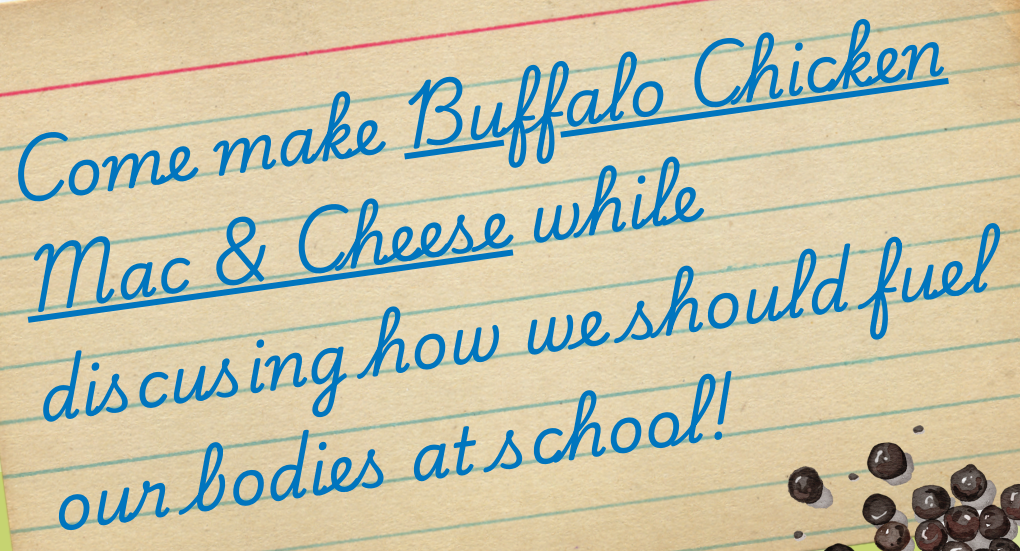 Come make Buffalo Chicken
Mac & Cheese while
discusing how we should fuel
our bodies at school!